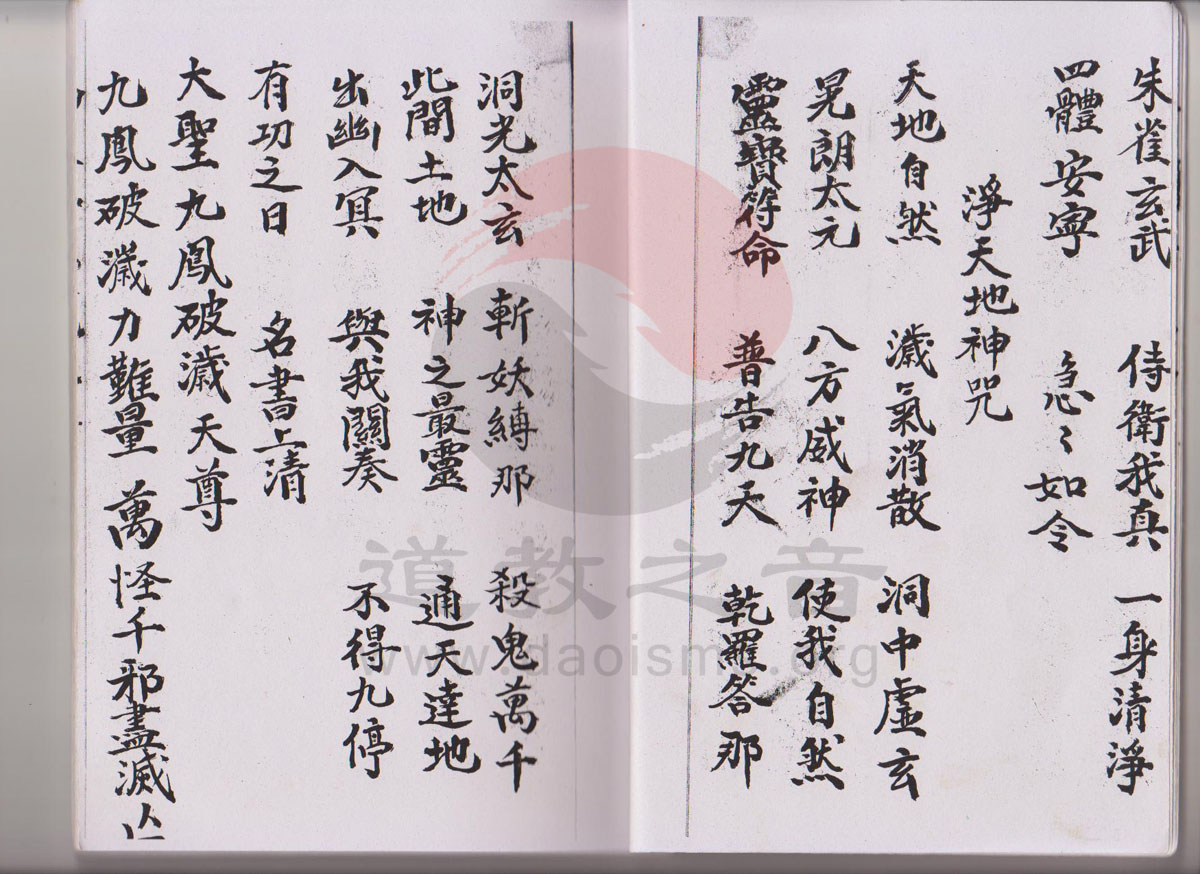 朱雀玄武 侍衛我真 一身清淨
四體安寧 急々如令
淨天地神咒
天地自然 濊氣消散 洞中虛玄
晃朗太元 八方威神 使我自然
靈寶符命 普告九天 乾羅答那
洞光太玄 斬妖縛那 殺鬼萬千
此間土地 神之最靈 通天達地
出幽入冥 與我關奏 不得九停
有功之日 名書上清
大聖九鳳破濊天尊
九鳳破濊力難量 萬怪千邪盡滅
道教之音
www.daoisms.org